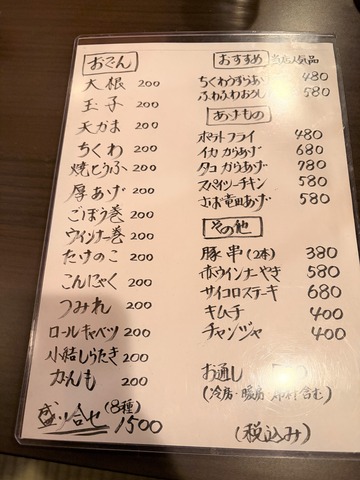 おでん
大根 200
玉子 200
天かま 200
ちくわ 200
焼とうふ 200
厚あげ 200
ごぼう巻 200
ウインナー巻 200
たけのこ 200
こんにゃく 200
つみれ 200
ロールキャベツ 200
小結しらたき 200
がんも 200
盛り合せ(8種) 1500
おすすめ 当店人気品
ちくわうすらあげ 480
ふわふわおろし 580
あげもの
ポテトフライ 480
イカからあげ 680
タコからあげ 780
スパイシーチキン 580
さば竜田あげ 580
その他
豚串(2本) 380
赤ウインナーやき 580
サイコロステーキ 680
キムチ 400
チャンジャ 400
お通し
(冷房・暖房 含む)
(税込み)